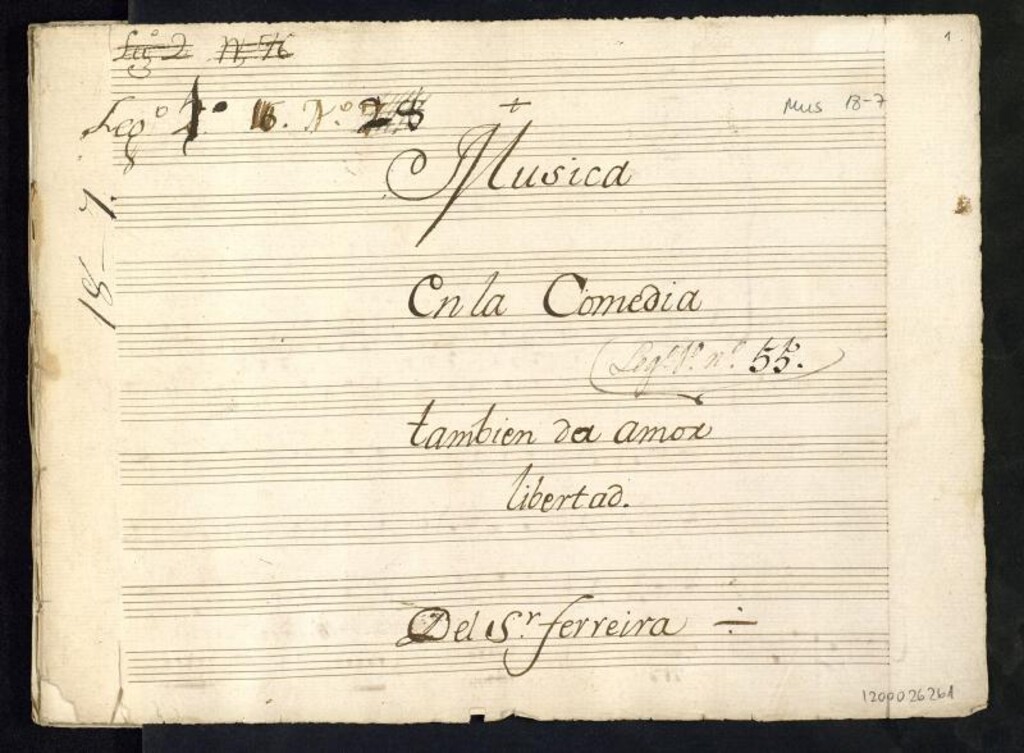 1
Leg.º 2 Nº 516
Leg.º 16. N.º 28
Mus 18-7
18-7.
+
Musica
En la Comedia
Leg.º 1º nº. 55.
tambien da amor
libertad.
Del S.r ferreira ÷
1200026261